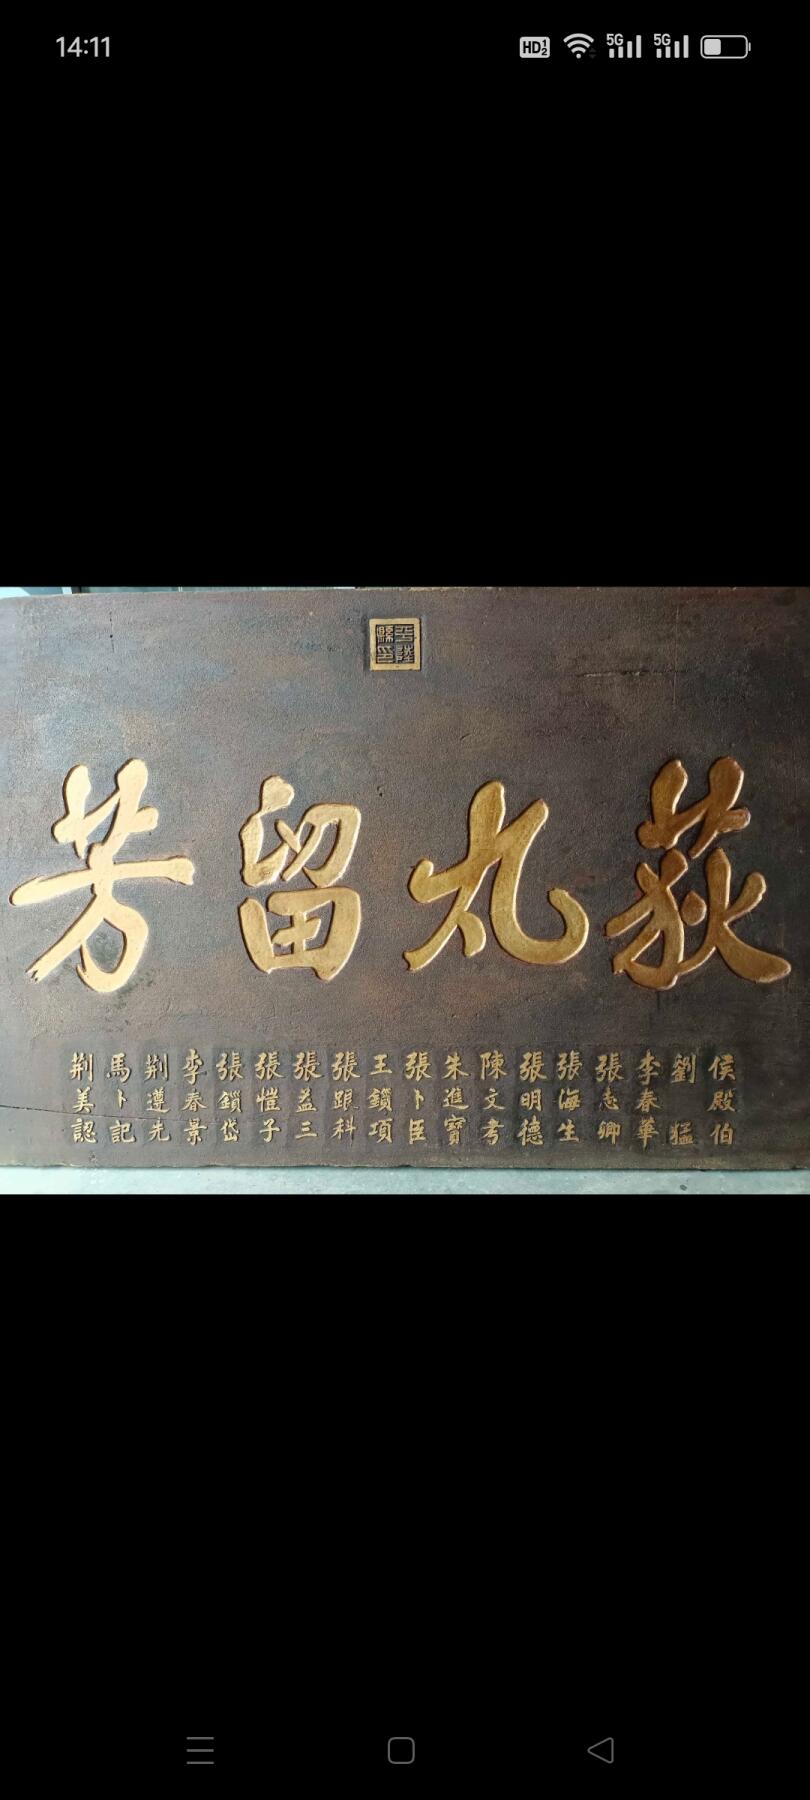 14:11
HD 1 2 5G 5G
平陸縣印
荻丸留芳
侯殿伯
劉猛
李春華
張志卿
張海生
張明德
陳文考
朱進寶
張卜臣
王鎖項
張跟科
張益三
張愷子
張鎖岱
李春景
荆遵先
馬卜記
荆美認